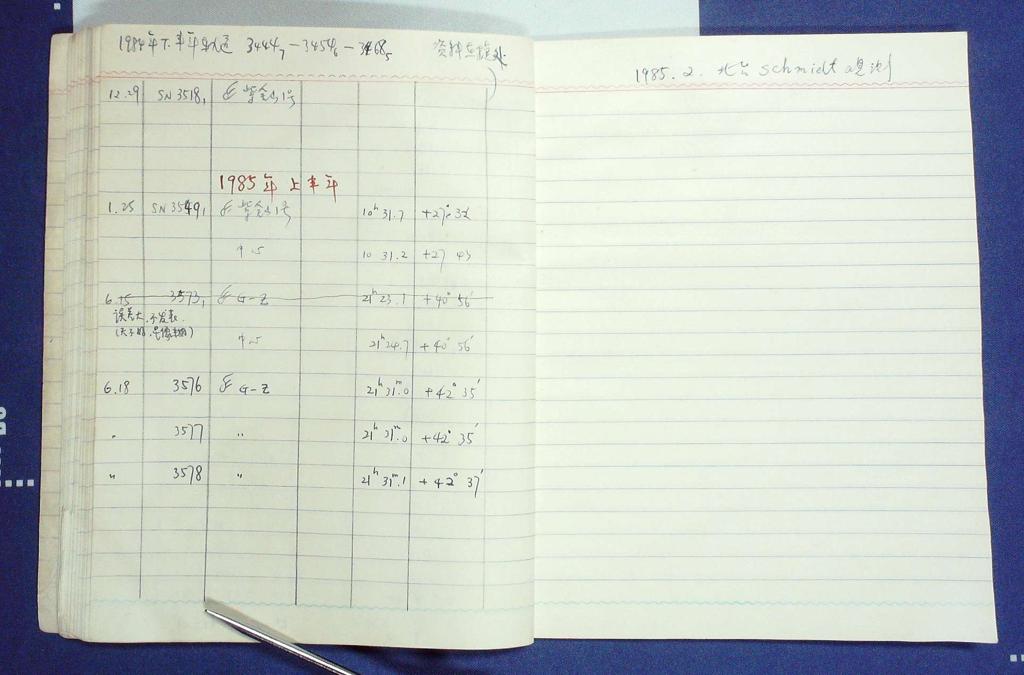 1984年下半年 3444₇ — 3454₆ — 3468₅ 资料在 处
12.29 SN 3518₁ 紫金山1号
1985年 上半年
1.25 SN 3549₁ 紫金山1号 10ʰ 31.7 +27° 32′
10 31.2 +27 43
6.15 3573₁ G-Z 21ʰ 23.1 +40° 56′
误差大.不发表.
21ʰ 24.7 +40° 56′
6.18 3576 G-Z 21ʰ 31ᵐ.0 +42° 35′
〃 3577 〃 21ʰ 31ᵐ.0 +42° 35′
〃 3578 〃 21ʰ 31ᵐ.1 +42° 37′
1985.2. 北台 Schmidt 观测